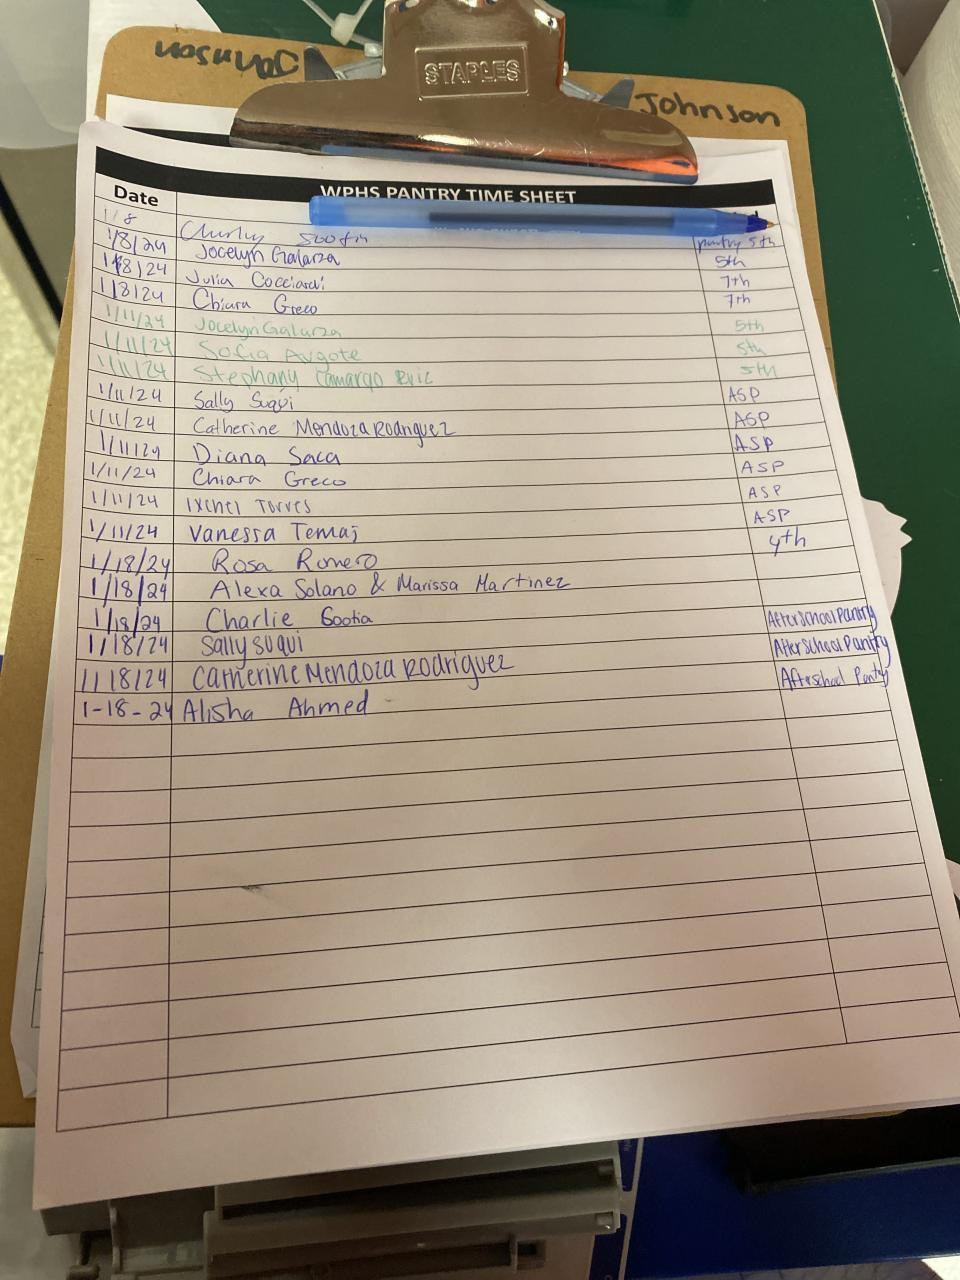 Johnson
STAPLES
Johnson
WPHS PANTRY TIME SHEET
Date
1/8 pantry 5th
1/8/24 Jocelyn Galarza 5th
1/8/24 Julia Cocciardi 7th
1/8/24 Chiara Greco 7th
1/11/24 Jocelyn Galarza 5th
1/11/24 Sofia Augote 5th
1/11/24 Stephany Camargo Ruiz 5th
1/11/24 Sally Suqui ASP
1/11/24 Catherine Mendoza Rodriguez ASP
1/11/24 Diana Saca ASP
1/11/24 Chiara Greco ASP
1/11/24 Ixchel Torres ASP
1/11/24 Vanessa Temaj ASP
1/18/24 Rosa Romero 4th
1/18/24 Alexa Solano & Marissa Martinez
1/18/24 Charlie Afterschool Pantry
1/18/24 Sally Suqui Afterschool Pantry
1/18/24 Catherine Mendoza Rodriguez Afterschool Pantry
1-18-24 Alisha Ahmed